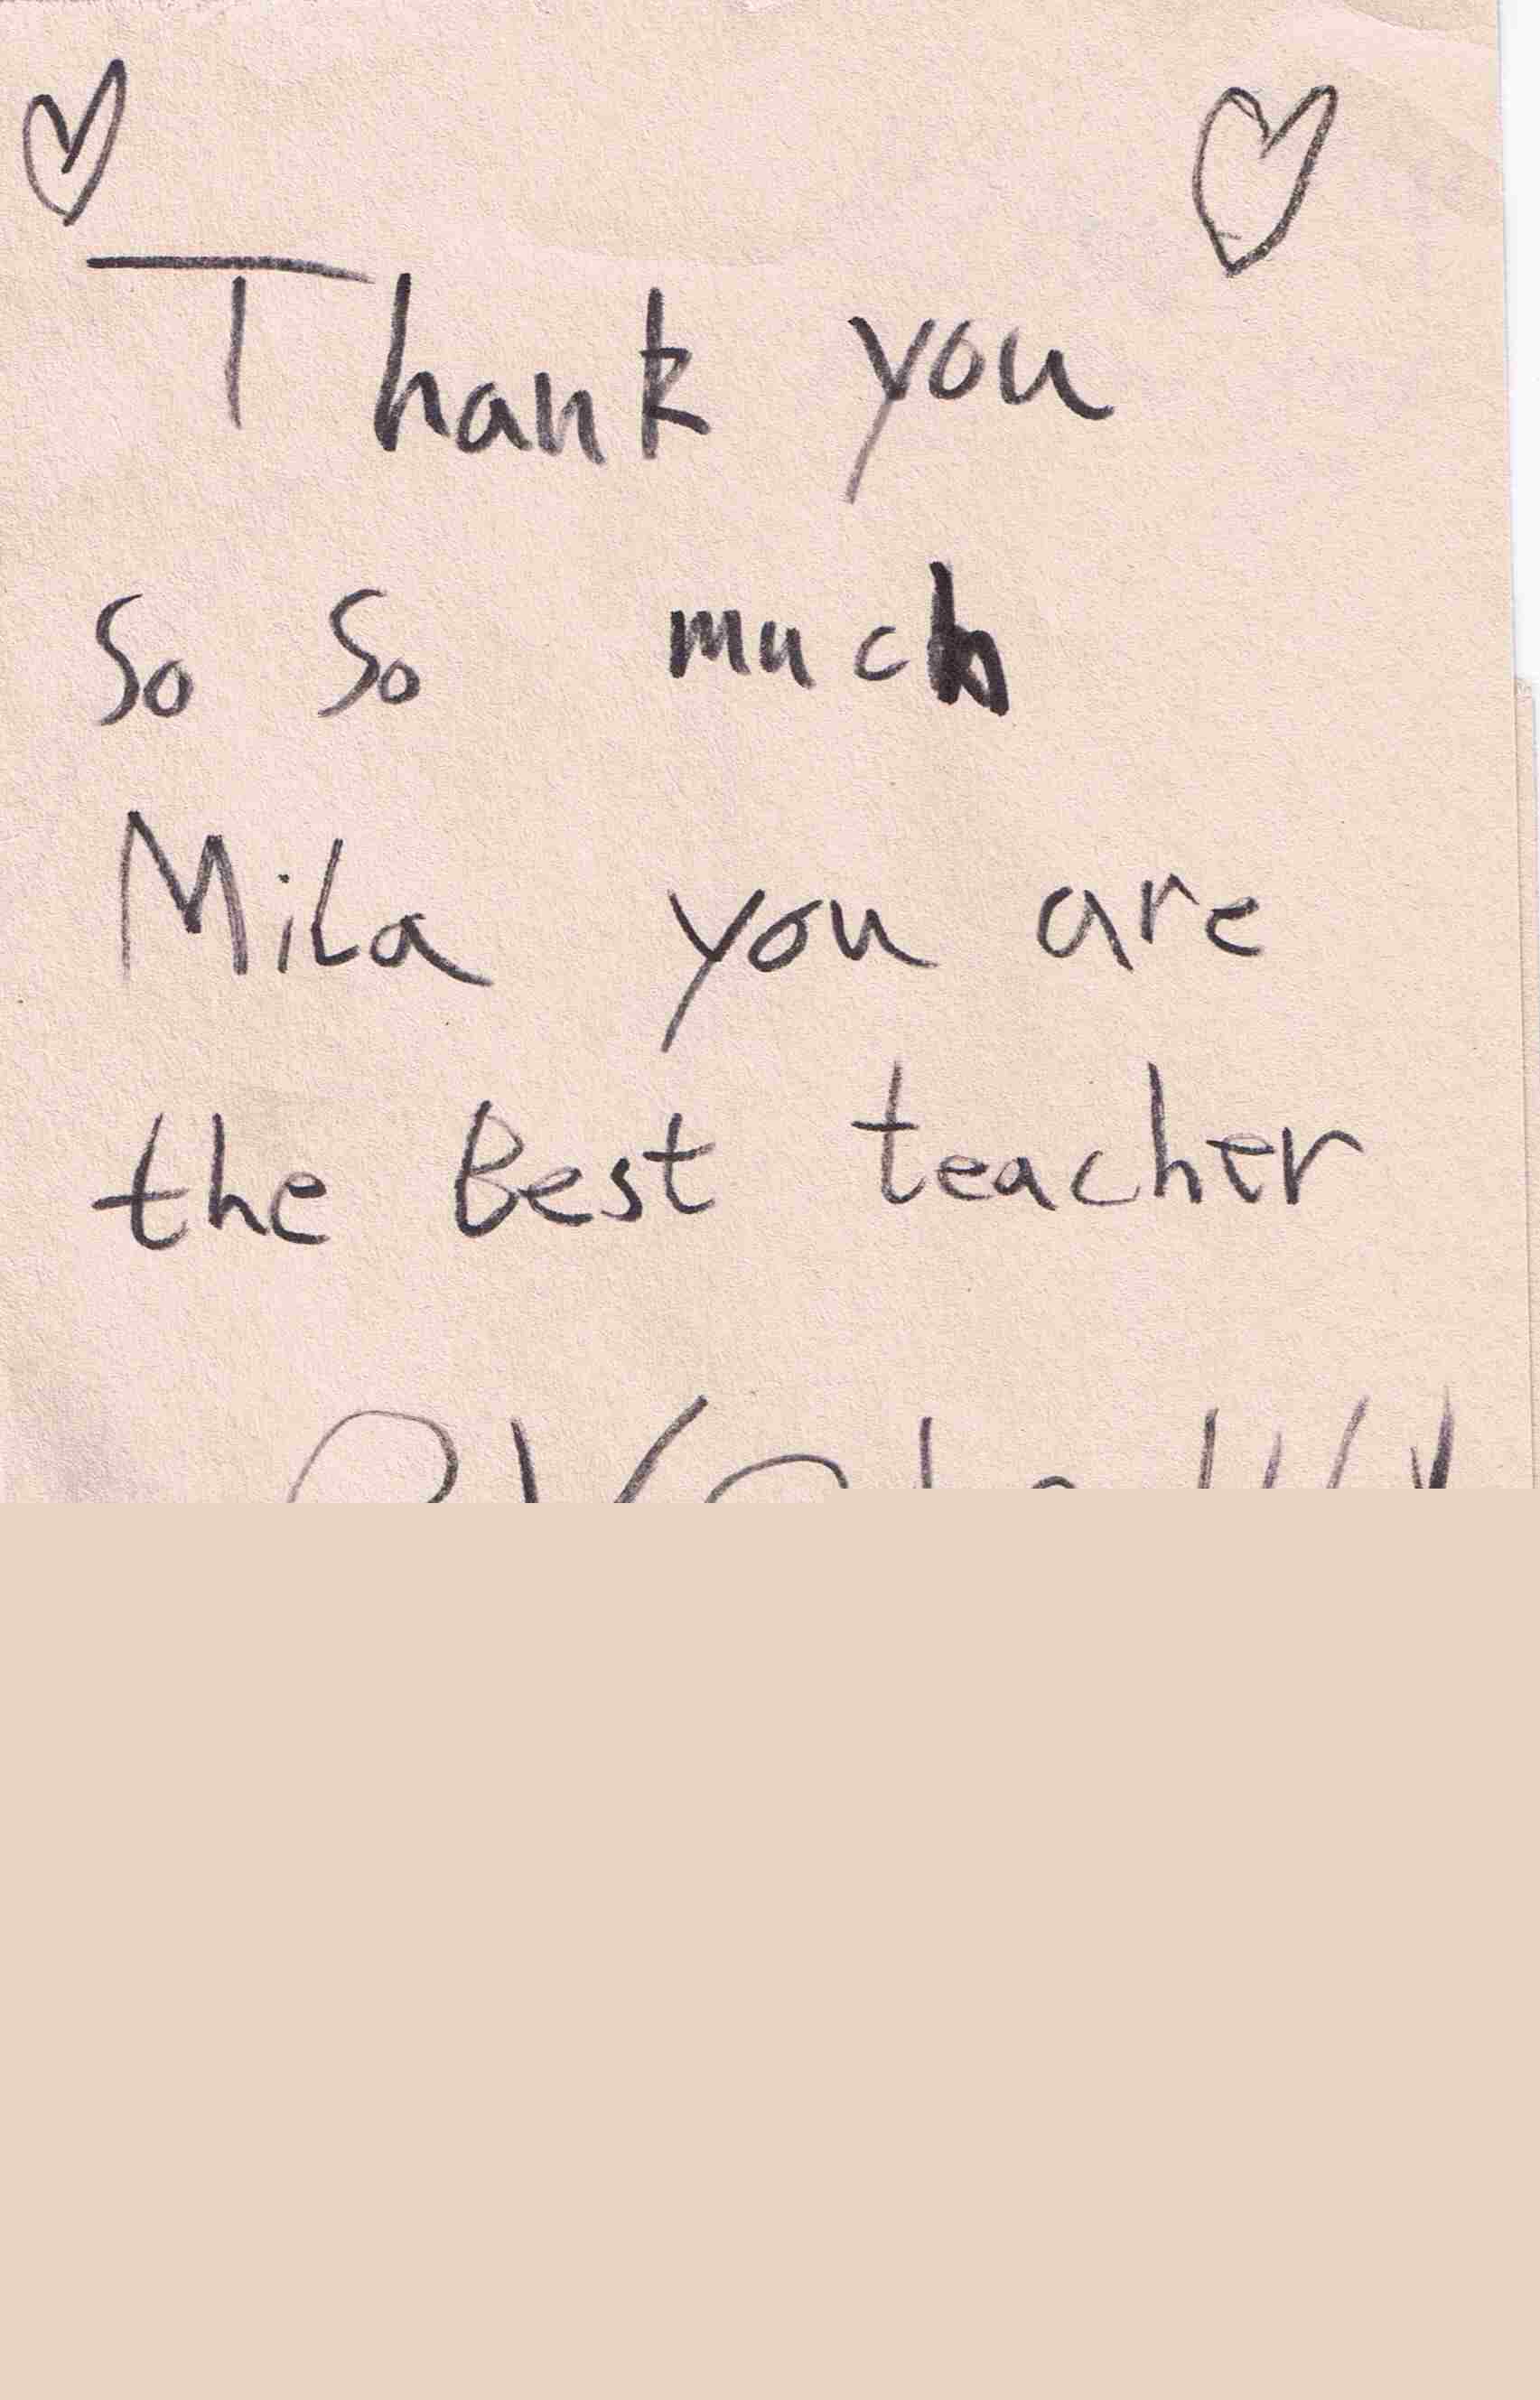 Thank you
So So much
Mila you are
the Best teacher